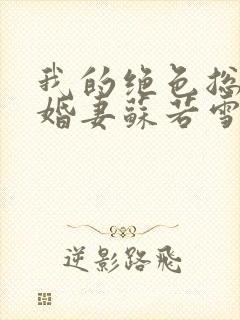 我的绝色总
婚妻苏若雪
逆影路飞